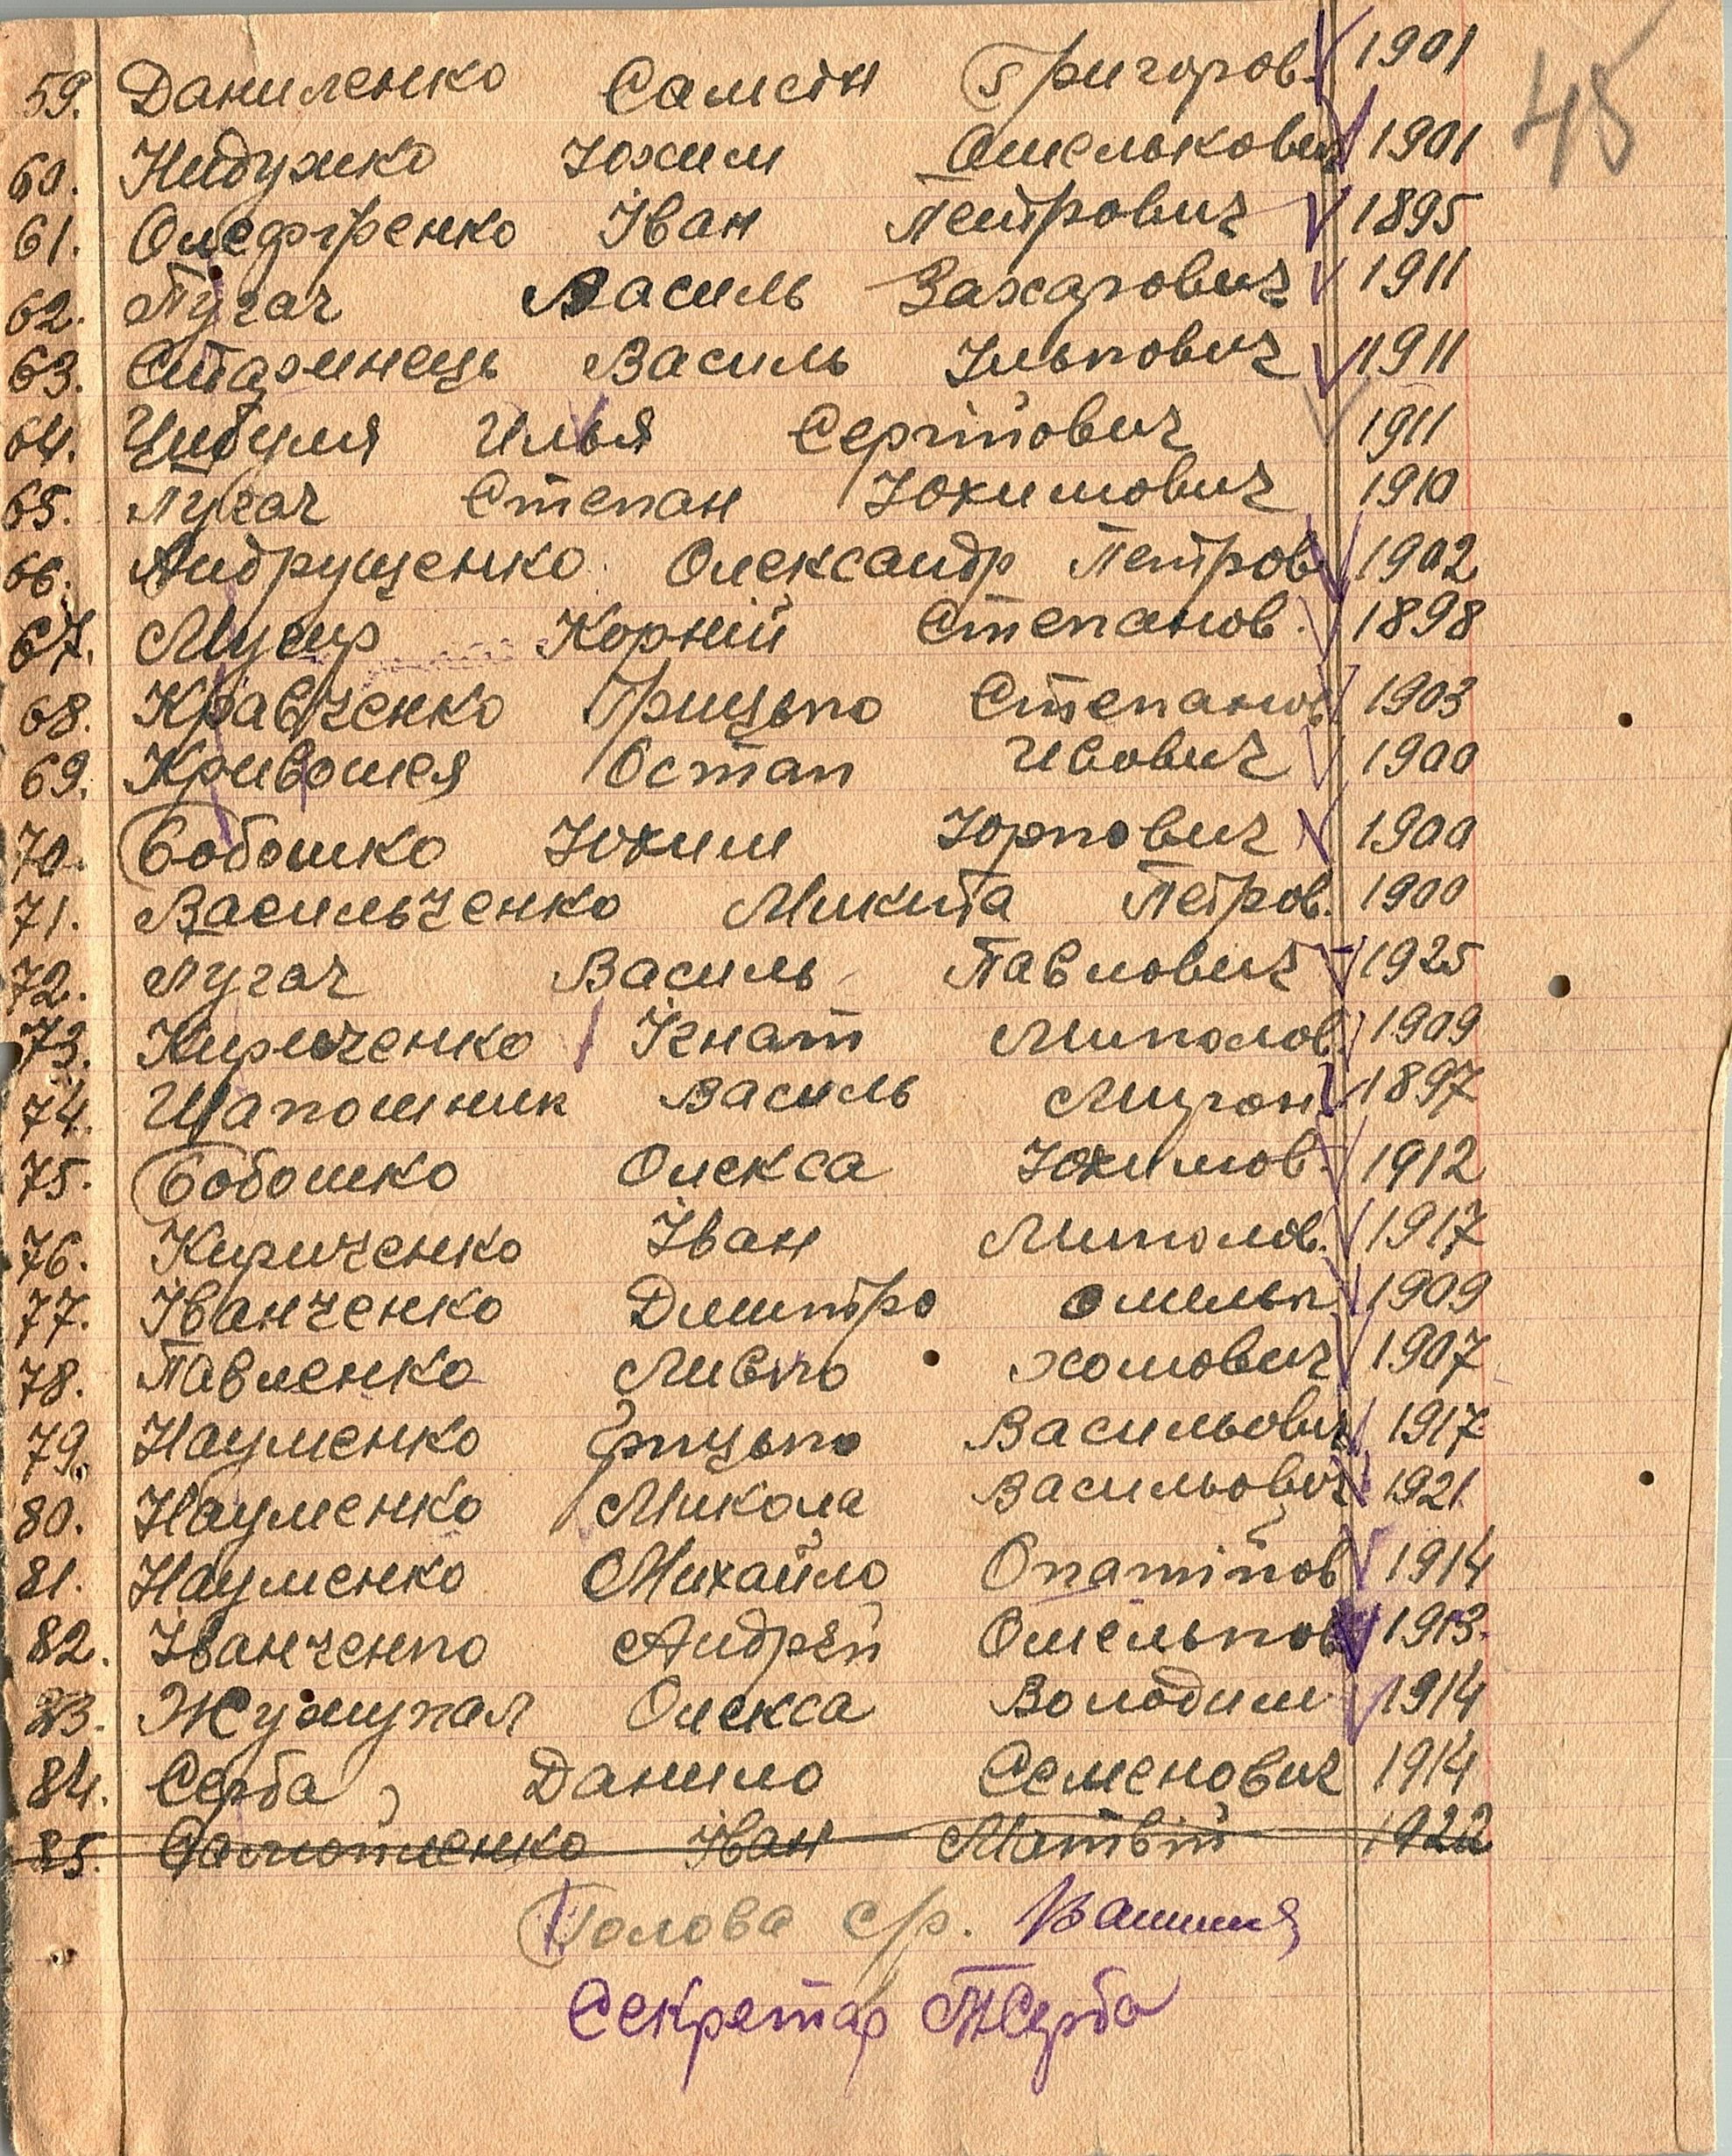 45
59. Даниленко Самсон Григоров. 1901
60. Юхим Омелькович 1901
61. Олефіренко Іван Петрович 1895
62. Пугач Василь Захарович 1911
63. Старинець Василь Ількович 1911
64. Цибуля Илья Сергійович 1911
65. Пугач Степан Юхимович 1910
66. Андрущенко Олександр Петров 1902
67. Корній Степанов. 1898
68. Кравченко Грицько Степанов 1903
69. Кривошея Остап Ивович 1900
70. Бобошко Юхим Юркович 1900
71. Васильченко Микита Петров. 1900
72. Пугач Василь Павлович 1925
73. Кириченко Ігнат Миколов. 1909
74. Шапошник Василь Мирон. 1897
75. Бобошко Олекса Юхимов. 1912
76. Кириченко Іван Миколов. 1917
77. Іванченко Дмитро омельк. 1909
78. Павленко Левко хомович 1907
79. Науменко Грицько Васильович 1917
80. Науменко Микола Васильович 1921
81. Науменко Михайло Опатійов 1914
82. Іванченко Андрій Омельков 1913.
83. Олекса Володим 1914
84. Серба, Данило Семенович 1914
85. Іван Матвій 1922
Голова с/р.
Секретар ПСерба